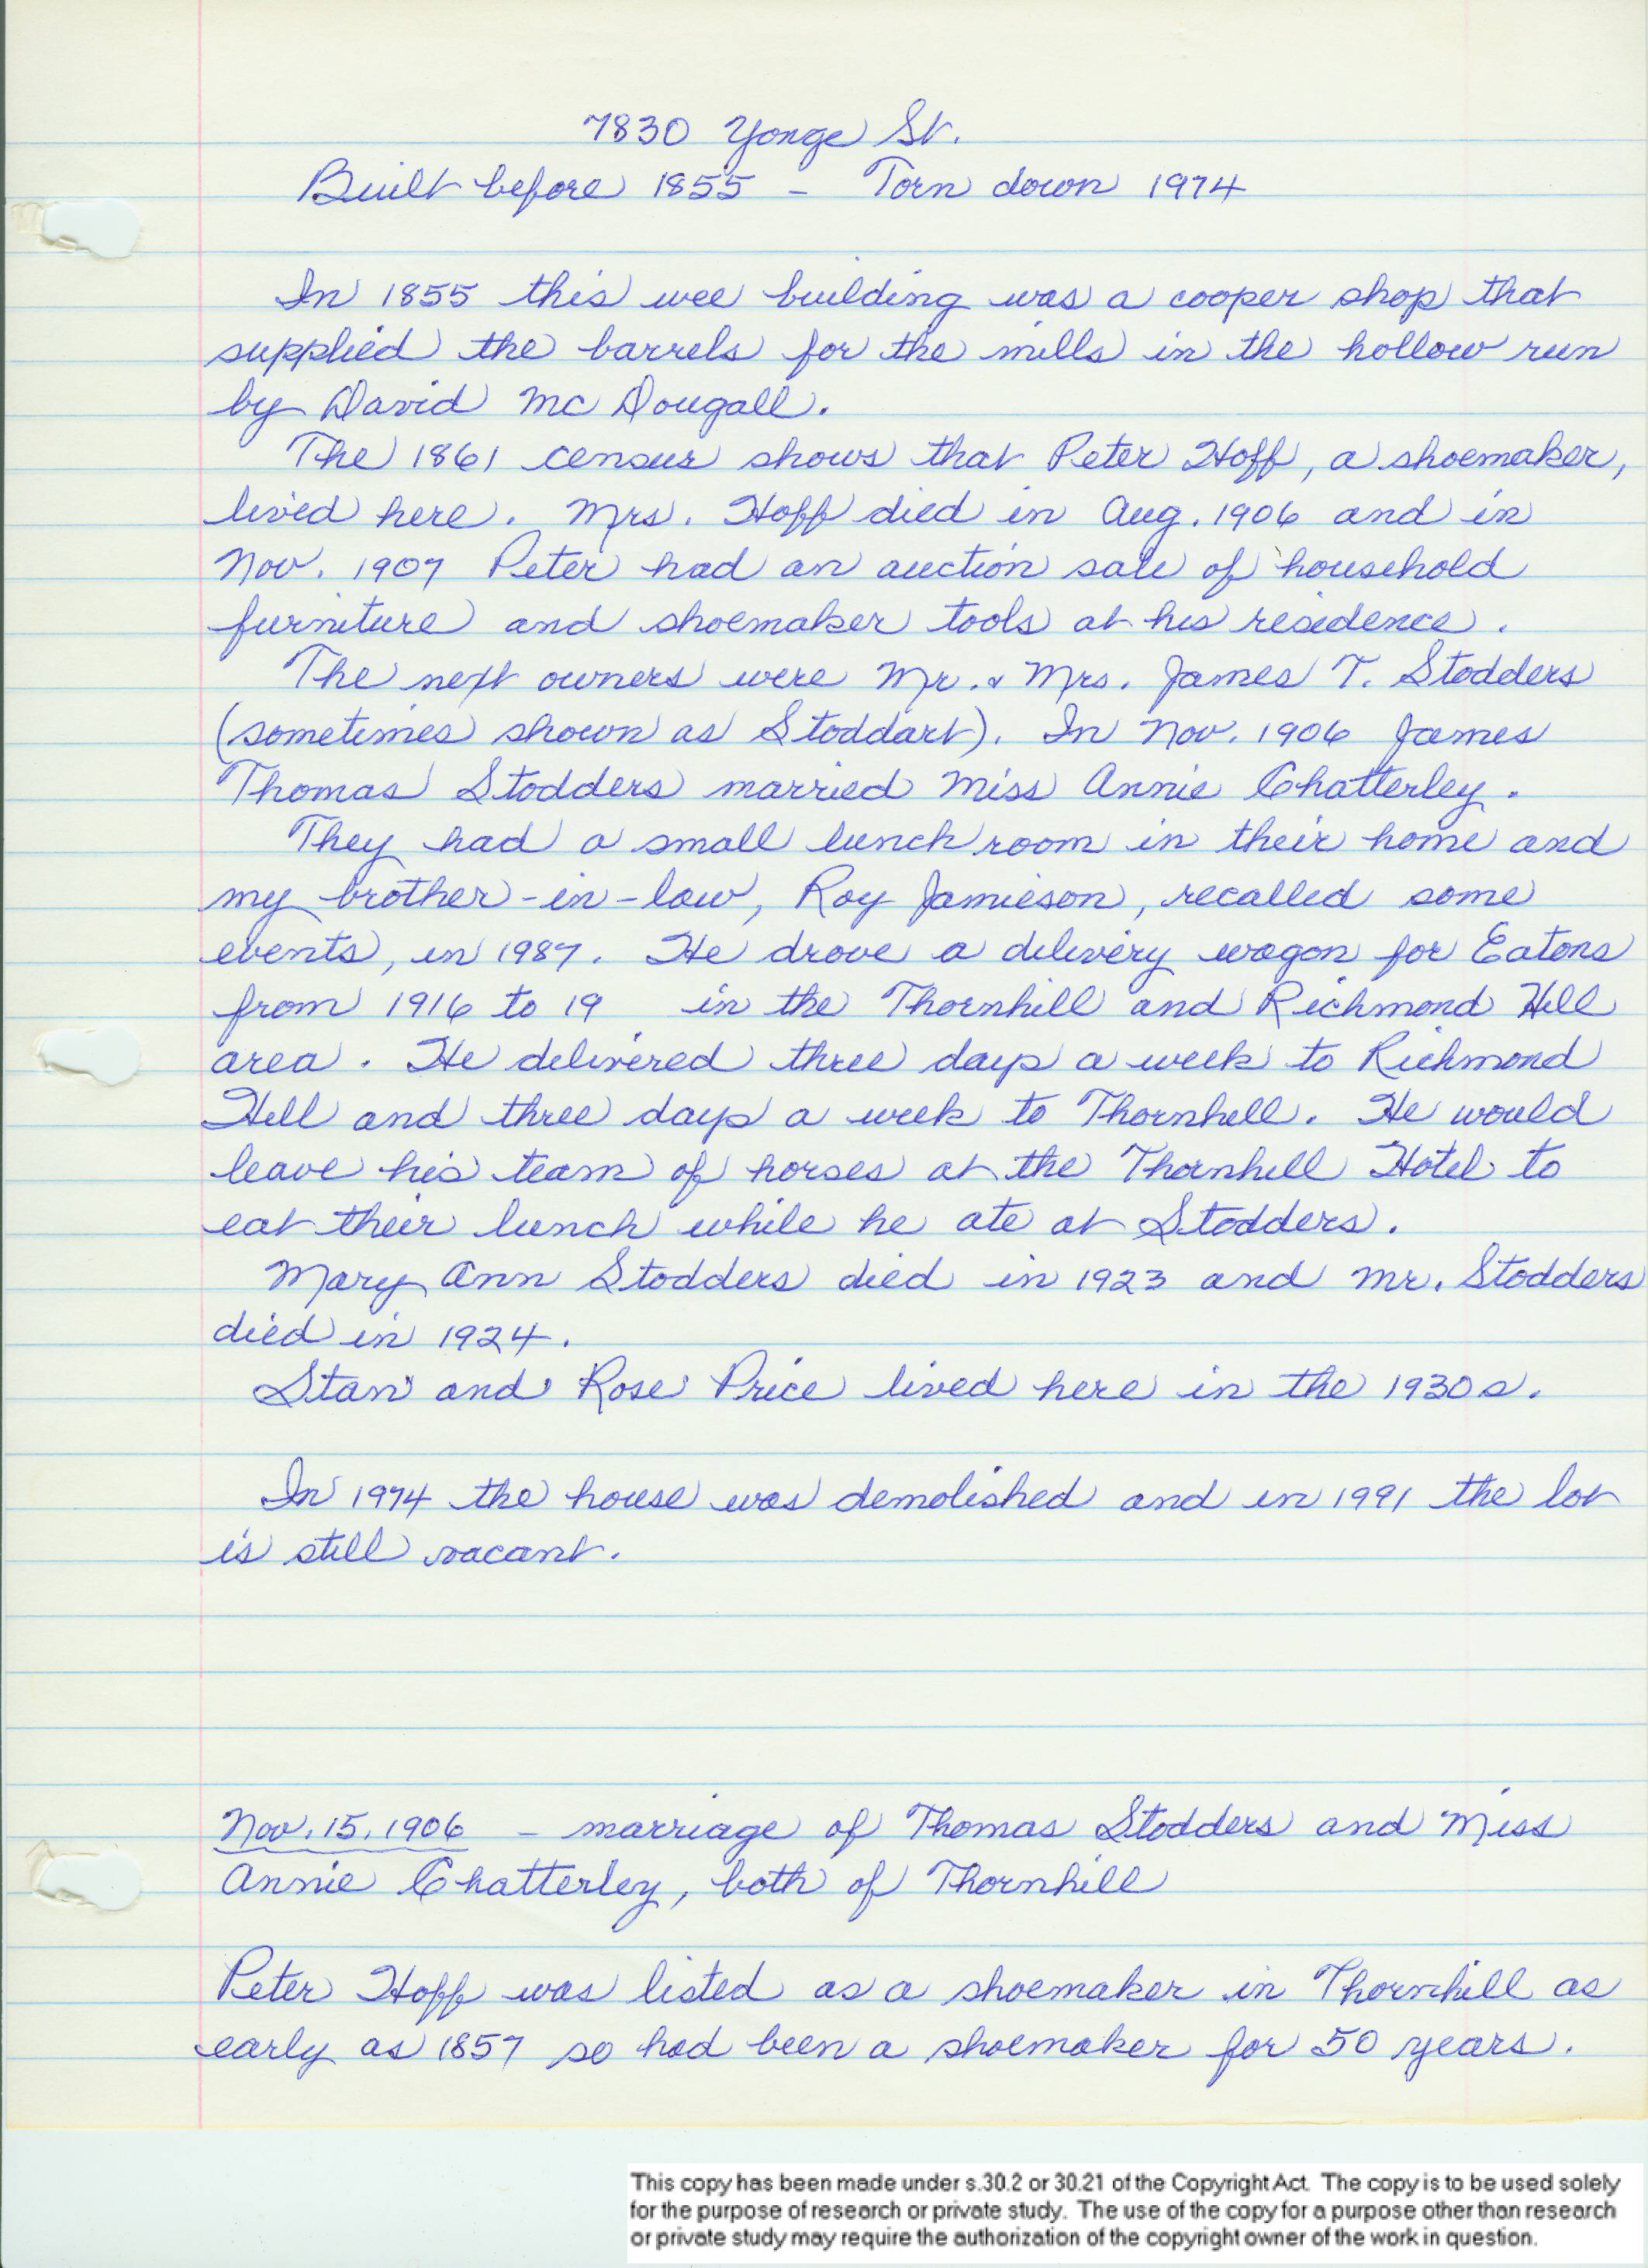 7830 Yonge St.
Built before 1855 - Torn down 1974
In 1855 this wee building was a cooper shop that
supplied the barrels for the mills in the hollow run
by David Mc Dougall.
The 1861 census shows that Peter Hoff, a shoemaker,
lived here. Mrs. Hoff died in Aug. 1906 and in
Nov. 1907 Peter had an auction sale of household
furniture and shoemaker tools at his residence.
The next owners were Mr. & Mrs. James T. Stodders
(sometimes shown as Stoddart). In Nov. 1906 James
Thomas Stodders married Miss Annie Chatterley.
They had a small lunch room in their home and
my brother-in-law, Roy Jamieson, recalled some
events, in 1987. He drove a delivery wagon for Eatons
from 1916 to 19 in the Thornhill and Richmond Hill
area. He delivered three days a week to Richmond
Hill and three days a week to Thornhill. He would
leave his team of horses at the Thornhill Hotel to
eat their lunch while he ate at Stodders.
Mary Ann Stodders died in 1923 and Mr. Stodders
died in 1924.
Stan and Rose Price lived here in the 1930s.
In 1974 the house was demolished and in 1991 the lot
is still vacant.
Nov. 15, 1906 - marriage of Thomas Stodders and Miss
Annie Chatterley, both of Thornhill
Peter Hoff was listed as a shoemaker in Thornhill as
early as 1857 so had been a shoemaker for 50 years.
This copy has been made under s.30.2 or 30.21 of the Copyright Act. The copy is to be used solely
for the purpose of research or private study. The use of the copy for a purpose other than research
or private study may require the authorization of the copyright owner of the work in question.